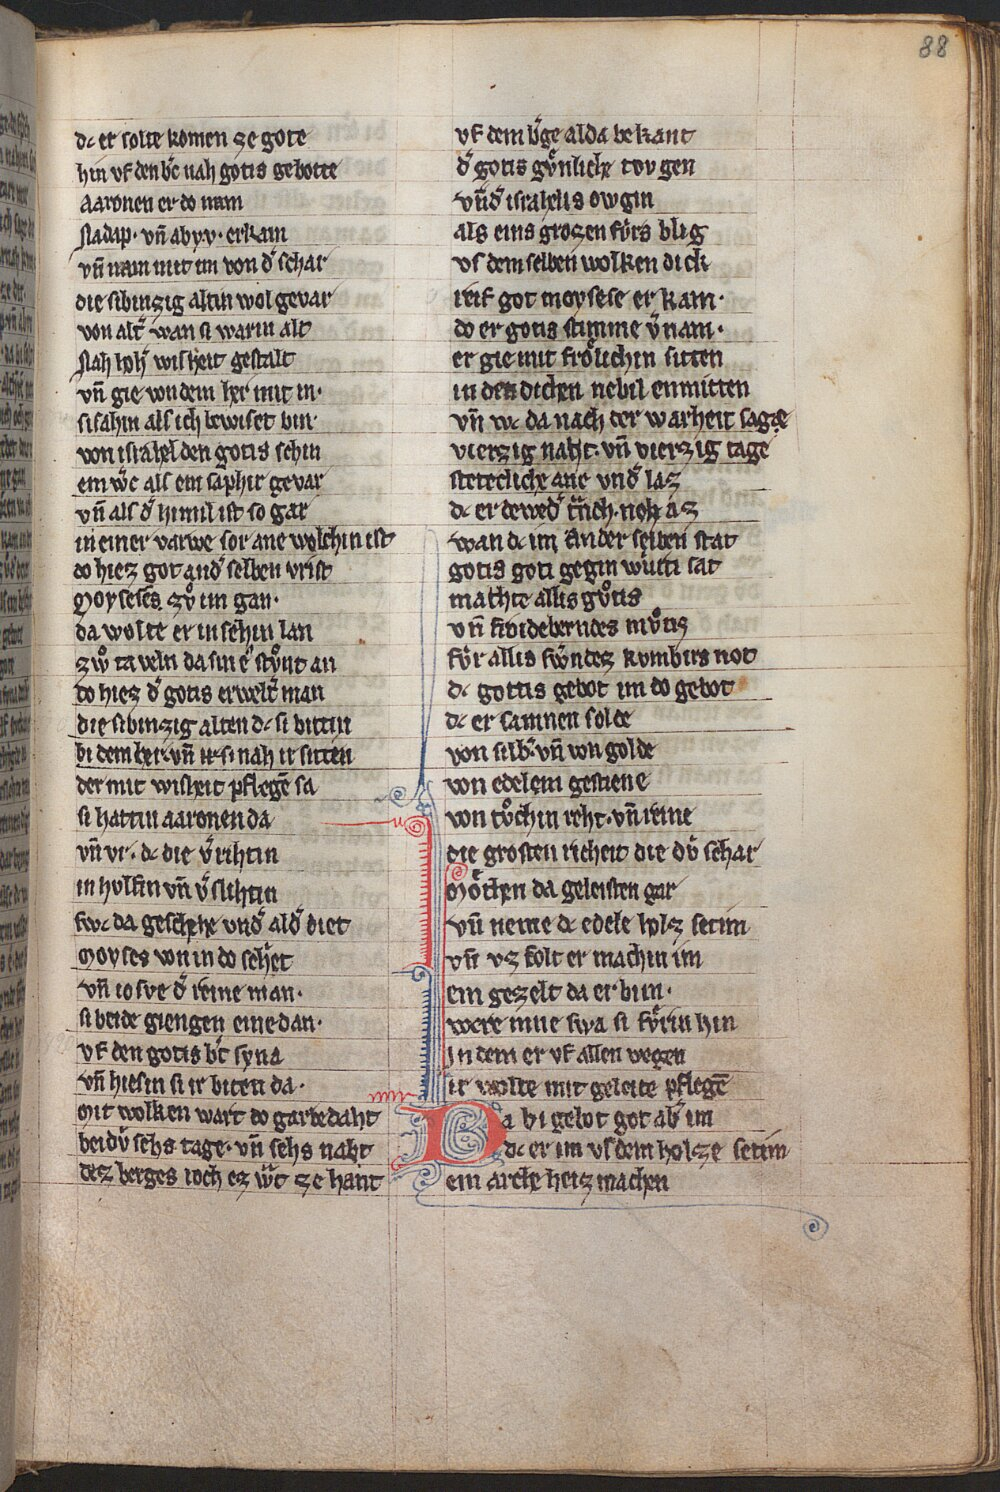 88
dc er solte komen ze gote
hin vf den bc nah gotis gebotte
Aaronen er do nam
Nadap· vn̄ abyv· erkam
vn̄ nam mit im von d̓ schar
die sibinzig altin wol gevar
von alt̓ wan si warin alt
Nah hoh̓ wisheit gestalt
vn̄ gie von dem her mit in·
si sahin als ich bewiset bin·
von israhel den gotis schin
ein w̓c als ein saphir gevar
vn̄ als d̓ himil ist so gar
in einer varwe for ane wolchin ist
do hiez got an d̓ selben vrist
Moyseses zv̊ im gan·
da wolte er in sehin lan
zwo̊ taveln da sin e stv̊nt an
do hiez d̓ gotis erwelt̓ man
die sibinzig alten dc si bittin
bi dem her· vn̄ ir si nah ir sitten
der mit wisheit pflegē sa
si hattin aaronen da
vn̄ vr· dc die v̓rihtin
in hulfin vn̄ v̓slihtin
swc da geschehe vnd̓ ald̓ diet
Moyses von in do schiet
vn̄ iosve d̓ reine man·
si beide giengen eine dan·
vf den gotis b̓c syna
vn̄ hiesin si ir biten da·
Mit wolken wart do gar bedaht
beidv̓ sehs tage· vn̄ sehs naht
dez berges ioch ez w̓t ze hant
vf dem b̓ge alda bekant
d̓ gotis gv̊nliche tovgen
vn̄ d̓ israhelis owgin
als eins grozen fv̓rs blig
vs dem selben wolken dick
reif got moysese er kam·
do er gotis stimme v̓nam·
er gie mit frölichin sitten
in den dichen nebil enmitten
vn̄ wc da nach der warheit sage
vierzig naht· vn̄ vierzig tage
stetecliche ane vnd̓ laz
dc er dewed̓ t̓nch noh az
wan dc im an der selben stat
gotis goti gegin wurti sat
machte allis gv̊tis
vn̄ froideberndes mv̊tis
fv̓r allis fwndez kvmbirs not
dc gottis gebot im do gebot
dc er samnen solde
von silb̓· vn̄ von golde
von edelem gesteine
von tv̊chin reht· vn̄ reine
die grosten richeit die dv̓ schar
Möchen da geleisten gar
vn̄ neme dc edele holz setim
vn̄ vz solt er machin im
ein gezelt da er bin·
were inne swa si fv̓rin hin
In dem er vf allen wegen
ir wolte mit geleite pflegē
Da bi gebot got ab̓ im
dc er im vs dem holze setim
ein arche heiz machen